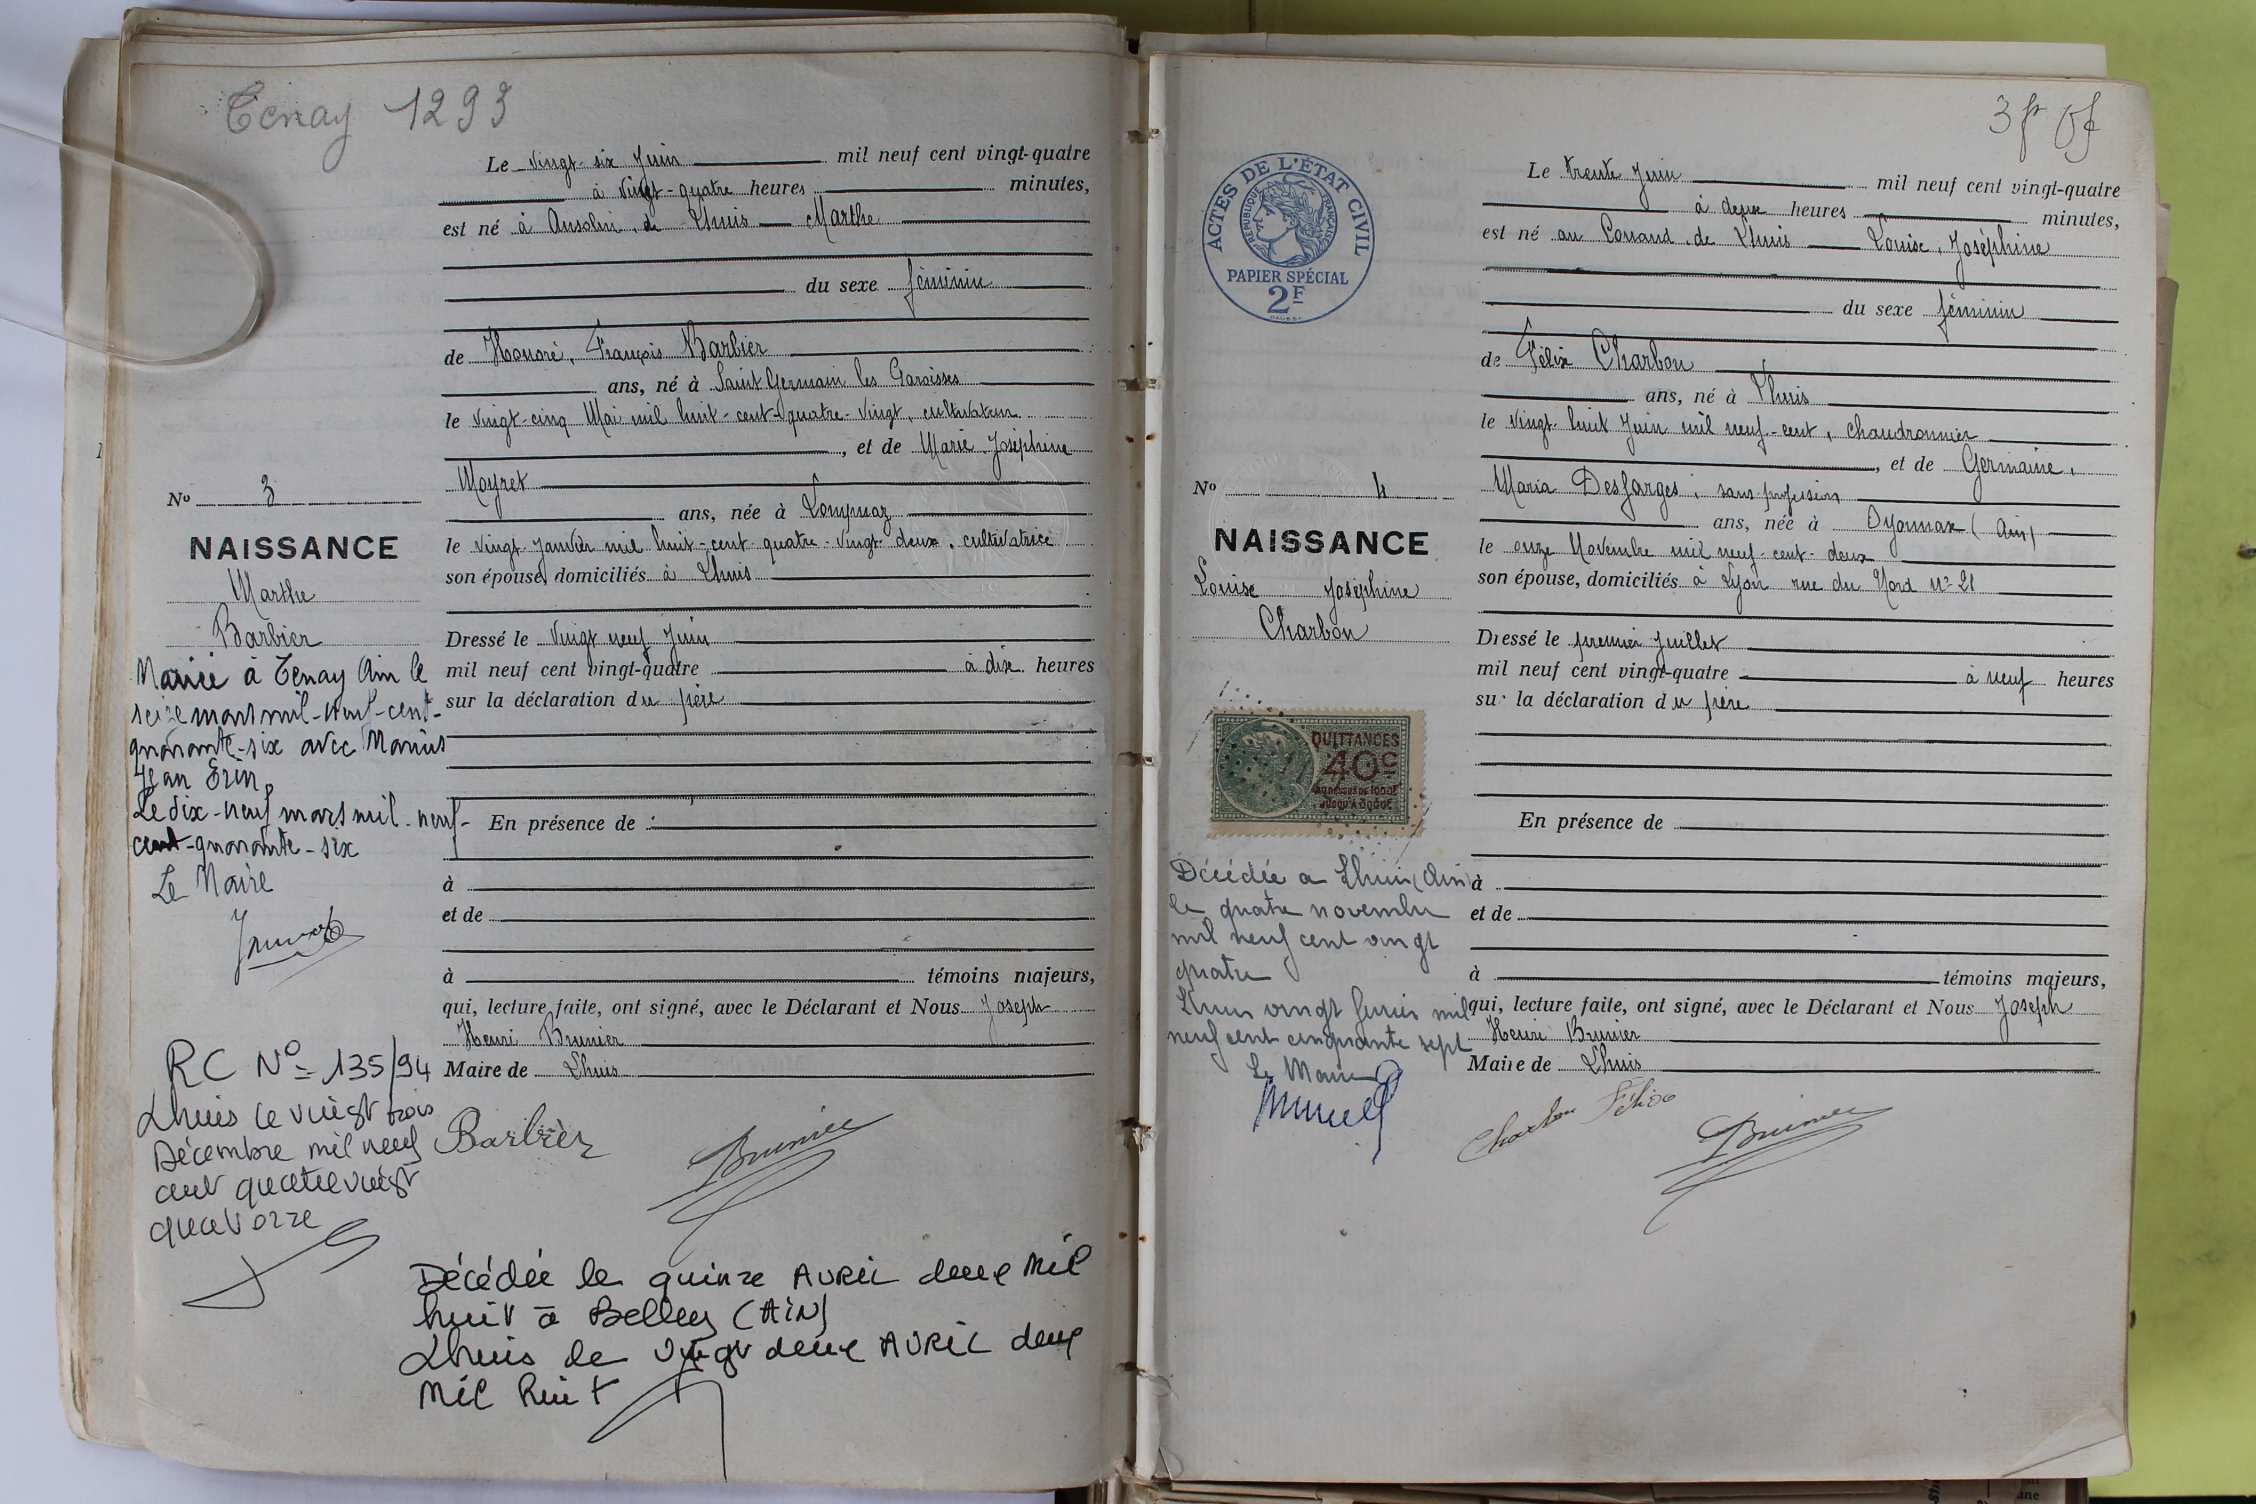 Tenay 1293
Le vingt-six Juin mil neuf cent vingt-quatre
à vingt-quatre heures minutes,
est né à Ansolin, de Lhuis Marthe
du sexe féminin
de Honoré, François Barbier
ans, né à Saint Germain les Paroisses
le vingt-cinq Mai mil huit-cent-quatre-vingt, cultivateur
, et de Marie Joséphine
Moyret
ans, née à Lompnaz
le vingt Janvier mil huit-cent-quatre-vingt deux, cultivatrice
son épouse, domiciliés à Lhuis
Dressé le vingt neuf Juin
mil neuf cent vingt-quatre à dix heures
sur la déclaration du père
En présence de :
à
et de
à témoins majeurs,
qui, lecture faite, ont signé, avec le Déclarant et Nous Joseph
Henri Brunier
Maire de Lhuis
Barbier Brunier
No 3
NAISSANCE
Marthe
Barbier
Mariée à Tenay Ain le
seize mars mil-neuf-cent-
quarante-six avec Marius
Jean Erin.
Le dix-neuf mars mil-neuf-
cent-quarante-six
Le Maire
RC No 135/94
Lhuis le vingt trois
Décembre mil neuf
cent quatre vingt
quatorze
Décédée le quinze AVRIL deux Mil
huit à Belley (AIN)
Lhuis le vingt deux AVRIL deux
Mil huit
3 fr
ACTES DE L'ÉTAT CIVIL
RÉPUBLIQUE FRANÇAISE
PAPIER SPÉCIAL
2F
Le trente Juin mil neuf cent vingt-quatre
à deux heures minutes,
est né au Conand, de Lhuis Louise, Joséphine
du sexe féminin
de Félix Charbon
ans, né à Lhuis
le vingt huit Juin mil neuf-cent, chaudronnier
, et de Germaine,
Maria Desfarges, sans profession
ans, née à Oyonnax (Ain)
le onze Novembre mil neuf-cent-deux
son épouse, domiciliés à Lyon rue du Nord no 21
Dressé le premier Juillet
mil neuf cent vingt-quatre à neuf heures
sur la déclaration du père
En présence de
à
et de
à témoins majeurs,
qui, lecture faite, ont signé, avec le Déclarant et Nous Joseph
Henri Brunier
Maire de Lhuis
Charbon Félix Brunier
No 4
NAISSANCE
Louise Joséphine
Charbon
QUITTANCES
40c
Décédée a Lhuis (Ain)
le quatre novembre
mil neuf cent vingt
quatre
Lhuis vingt février mil
neuf cent cinquante sept
Le Maire